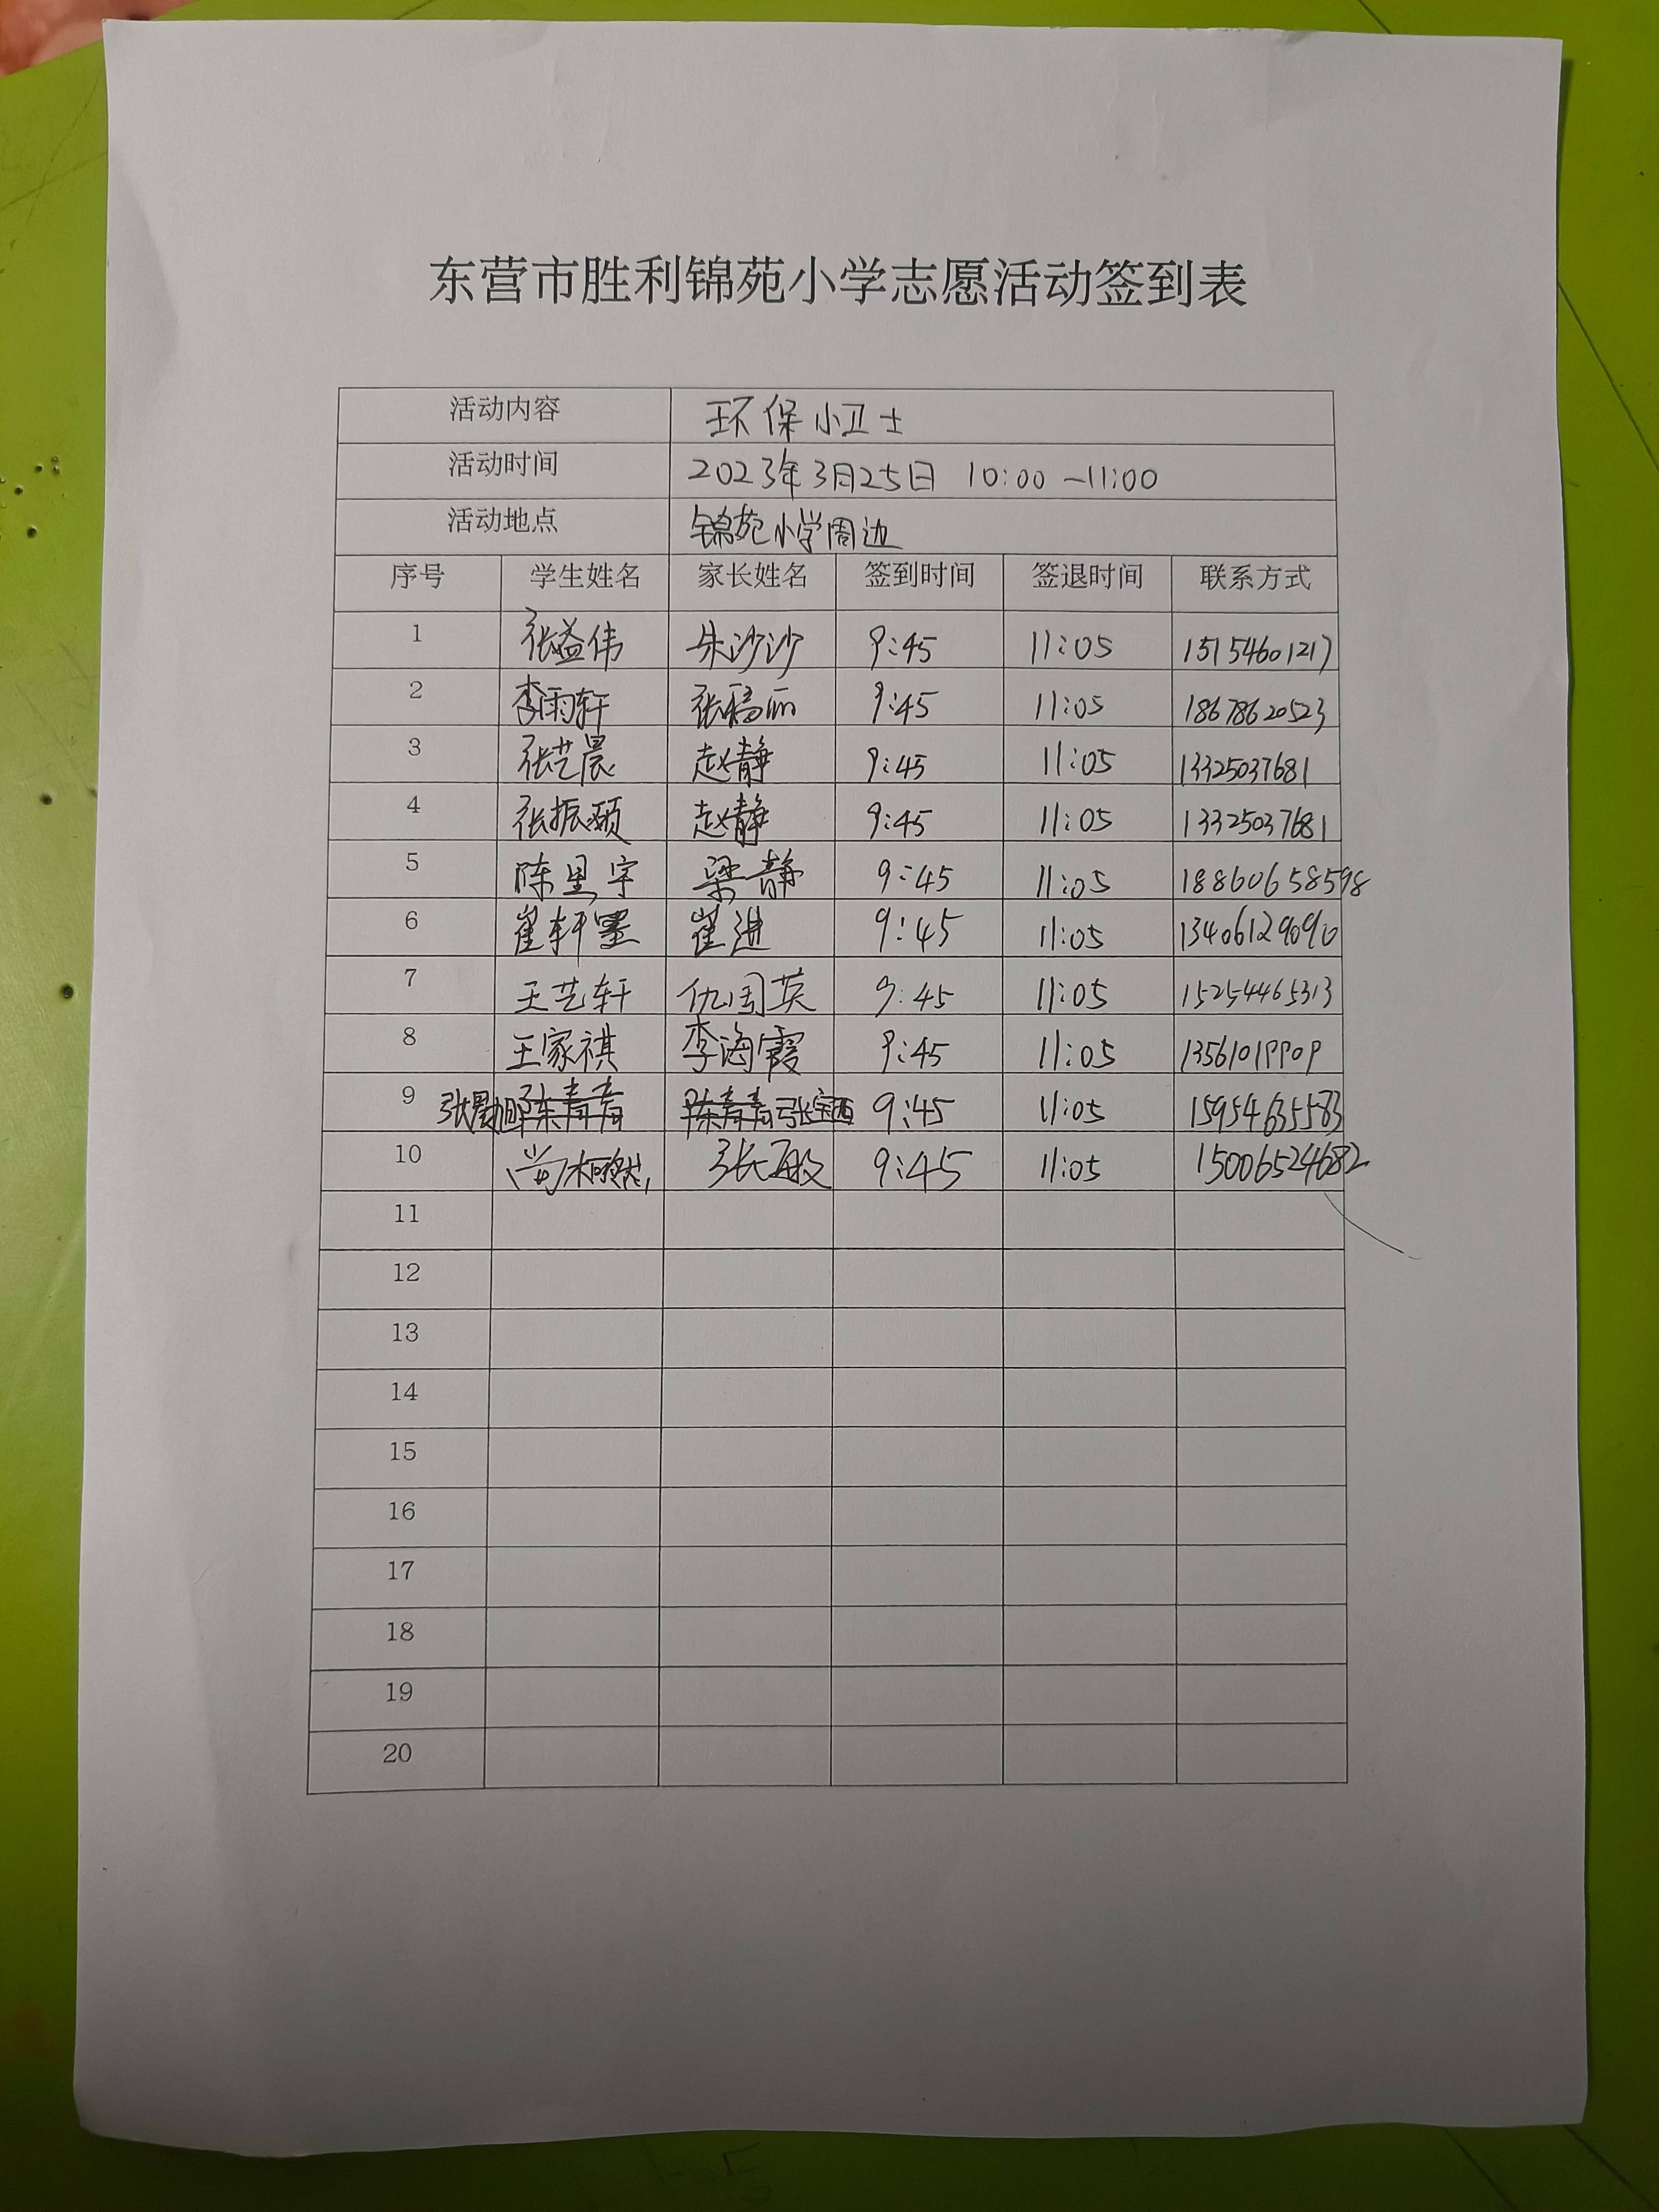 东营市胜利锦苑小学志愿活动签到表
活动内容 环保小卫士
活动时间 2023年3月25日 10:00-11:00
活动地点 锦苑小学周边
序号 学生姓名 家长姓名 签到时间 签退时间 联系方式
1 张益伟 朱沙沙 9:45 11:05 15154601217
2 李雨轩 9:45 11:05 18678620523
3 张艺晨 赵静 9:45 11:05 13325037681
4 张振颐 赵静 9:45 11:05 13325037681
5 陈思宇 梁静 9:45 11:05 18860658598
6 崔轩墨 崔进 9:45 11:05 13406129090
7 王艺轩 仇周英 9:45 11:05 15254465313
8 王家祺 李海霞 9:45 11:05 13561019909
9 陈青青 陈青青 9:45 11:05 15954635583
10 9:45 11:05 15006524682
11
12
13
14
15
16
17
18
19
20